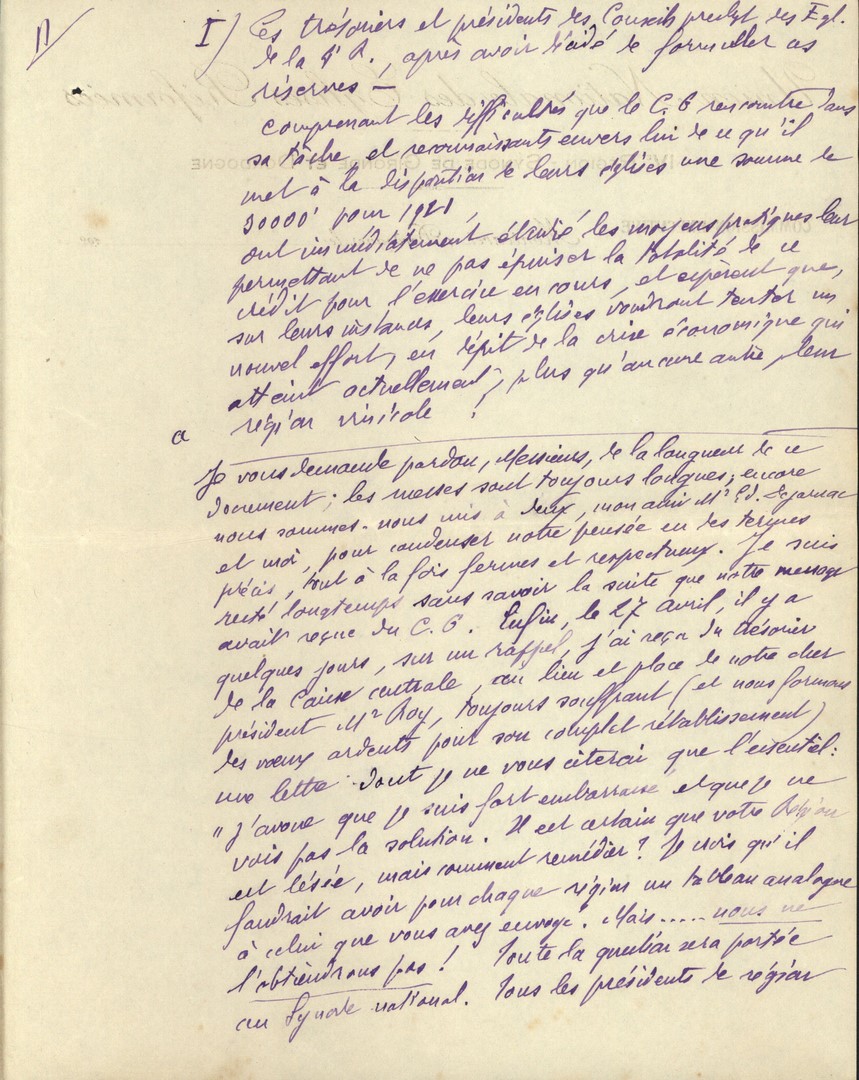 I) Les trésoriers et présidents des Conseils presbyt. des Egl.
de la R., après avoir décidé de formuller ces
réserves —
comprenant les difficultés que le C. G rencontre dans
sa tâche, et reconnaissants envers lui de ce qu'il
met à la disposition de leurs églises une somme de
30000f pour 1921
ont immédiatement étudié les moyens pratiques leur
permettant de ne pas épuiser la totalité de ce
crédit pour l'exercice en cours, et espèrent que,
sur leurs instances, leurs églises voudront tenter un
nouvel effort, en dépit de la crise économique qui
atteint actuellement, plus qu'aucune autre, leur
région vinicole
a
Je vous demande pardon, Messieurs, de la longueur de ce
document; les messes sont toujours longues; encore
nous sommes-nous mis à deux, mon ami Mr Ed.
et moi, pour condenser notre pensée en des termes
précis, tout à la fois fermes et respectueux. Je suis
resté longtemps sans savoir la suite que notre message
avait reçue du C. G. Enfin, le 27 avril, il y a
quelques jours, sur un rappel, j'ai reçu du trésorier
de la Caisse centrale, au lieu et place de notre cher
président Mr Roy, toujours souffrant (et nous formons
des vœux ardents pour son complet rétablissement)
une lettre dont je ne vous citerai que l'essentiel:
"J'avoue que je suis fort embarrassé et que je ne
vois pas la solution. Il est certain que votre Région
est lésée, mais comment remédier? Je crois qu'il
faudrait avoir pour chaque région un tableau analogue
à celui que vous avez envoyé. Mais..... nous ne
l'obtiendrons pas! Toute la question sera portée
au Synode national. Tous les présidents de région